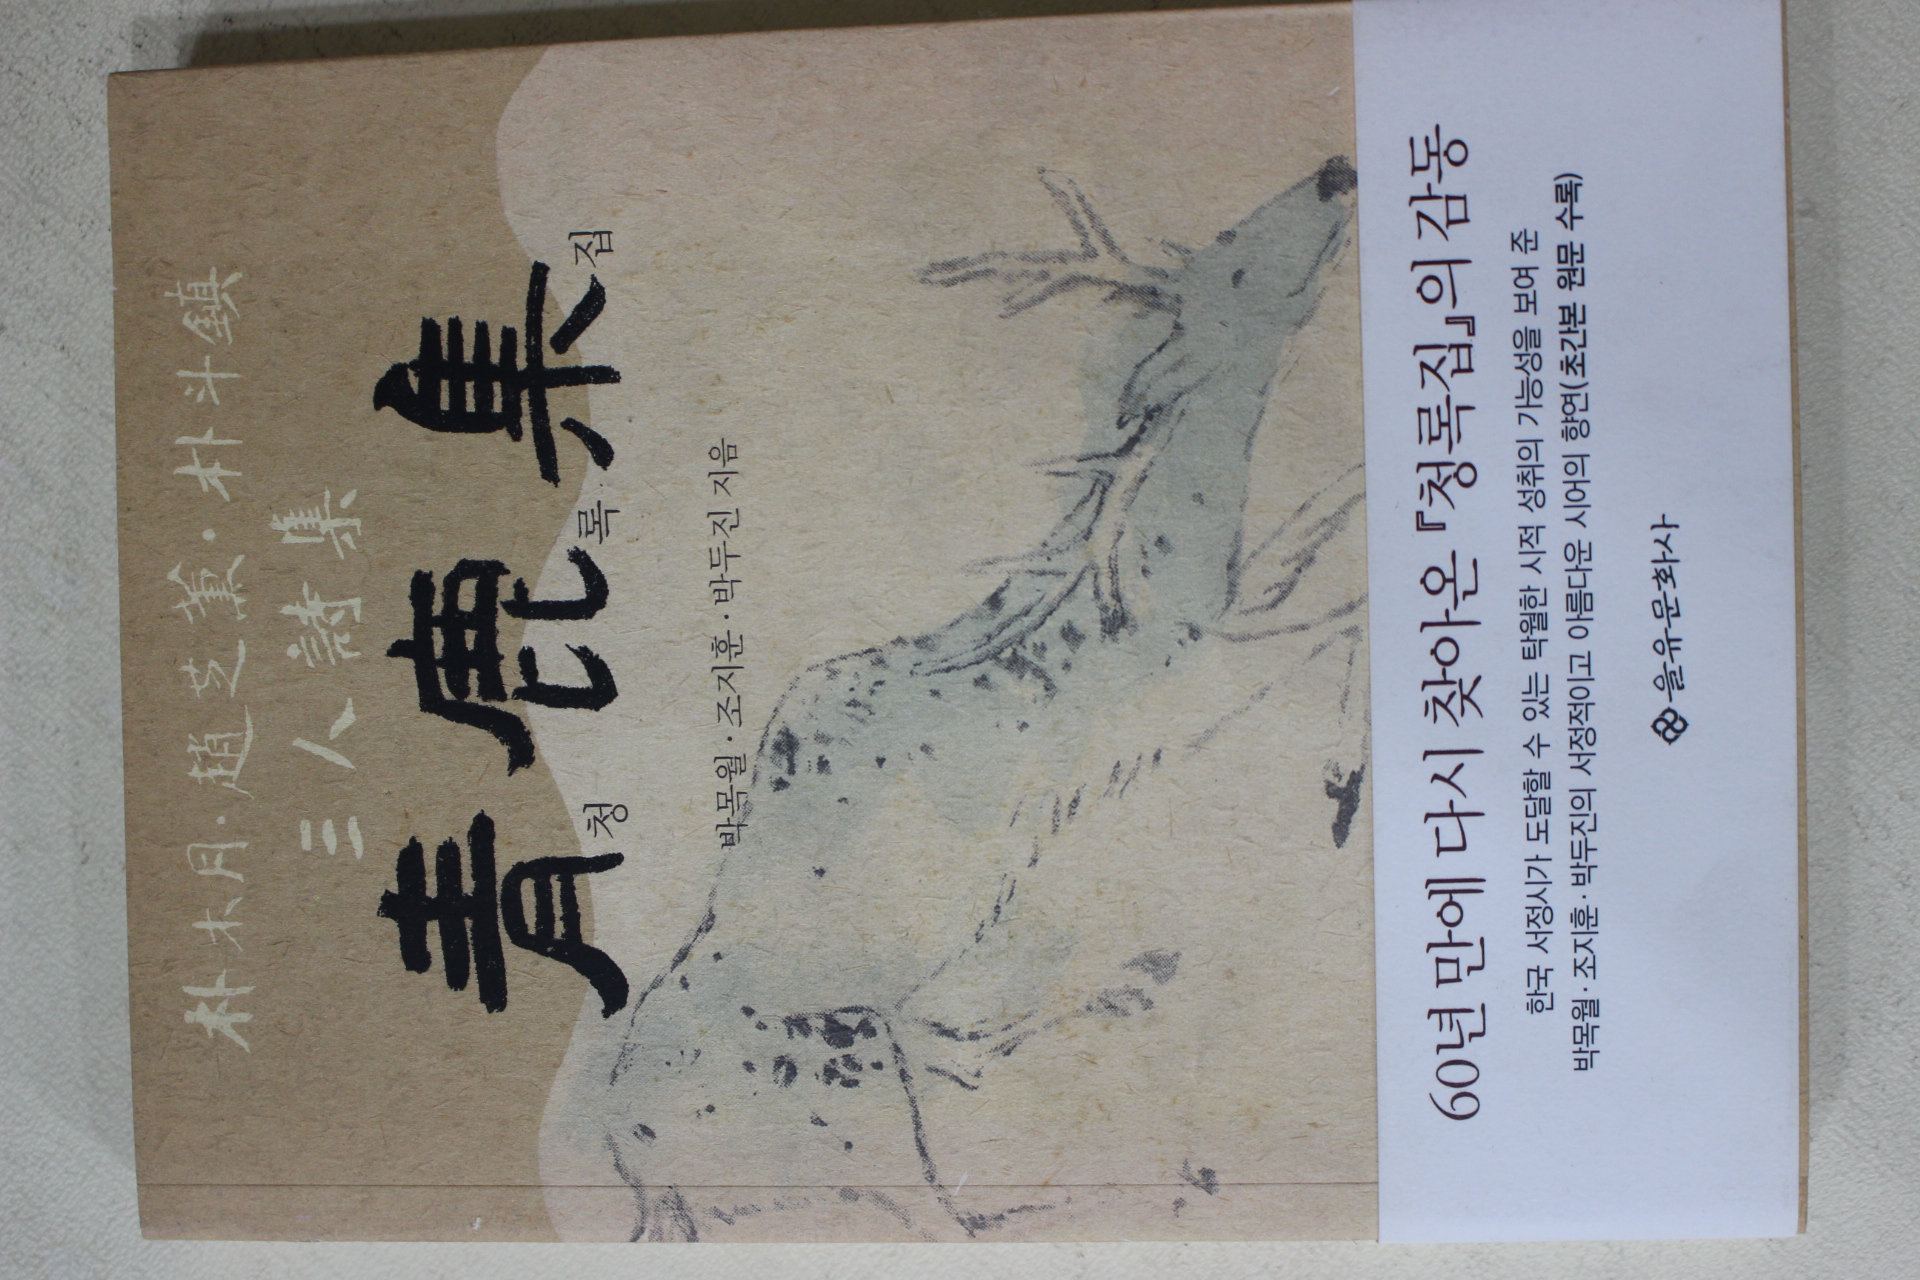 朴木月·趙芝薰·朴斗鎮
三人詩集
靑鹿集
청록집
박목월·조지훈·박두진 지음
60년 만에 다시 찾아온 『청록집』의 감동
한국 서정시가 도달할 수 있는 탁월한 시적 성취의 가능성을 보여 준
박목월·조지훈·박두진의 서정적이고 아름다운 시어의 향연(초간본 원문 수록)
을유문화사